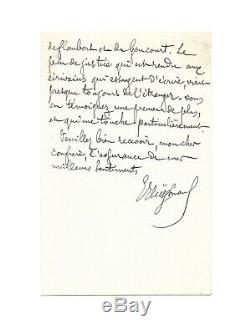 de Flaubert et de Goncourt. Le
peu de justice qui est rendu aux
écrivains qui essayent d'écrire, vient
presque toujours de l'étranger. Vous
en témoignez une preuve de plus,
et qui me touche particulièrement.
Veuillez bien recevoir, mon cher
confrère, l'assurance de mes
meilleurs sentiments